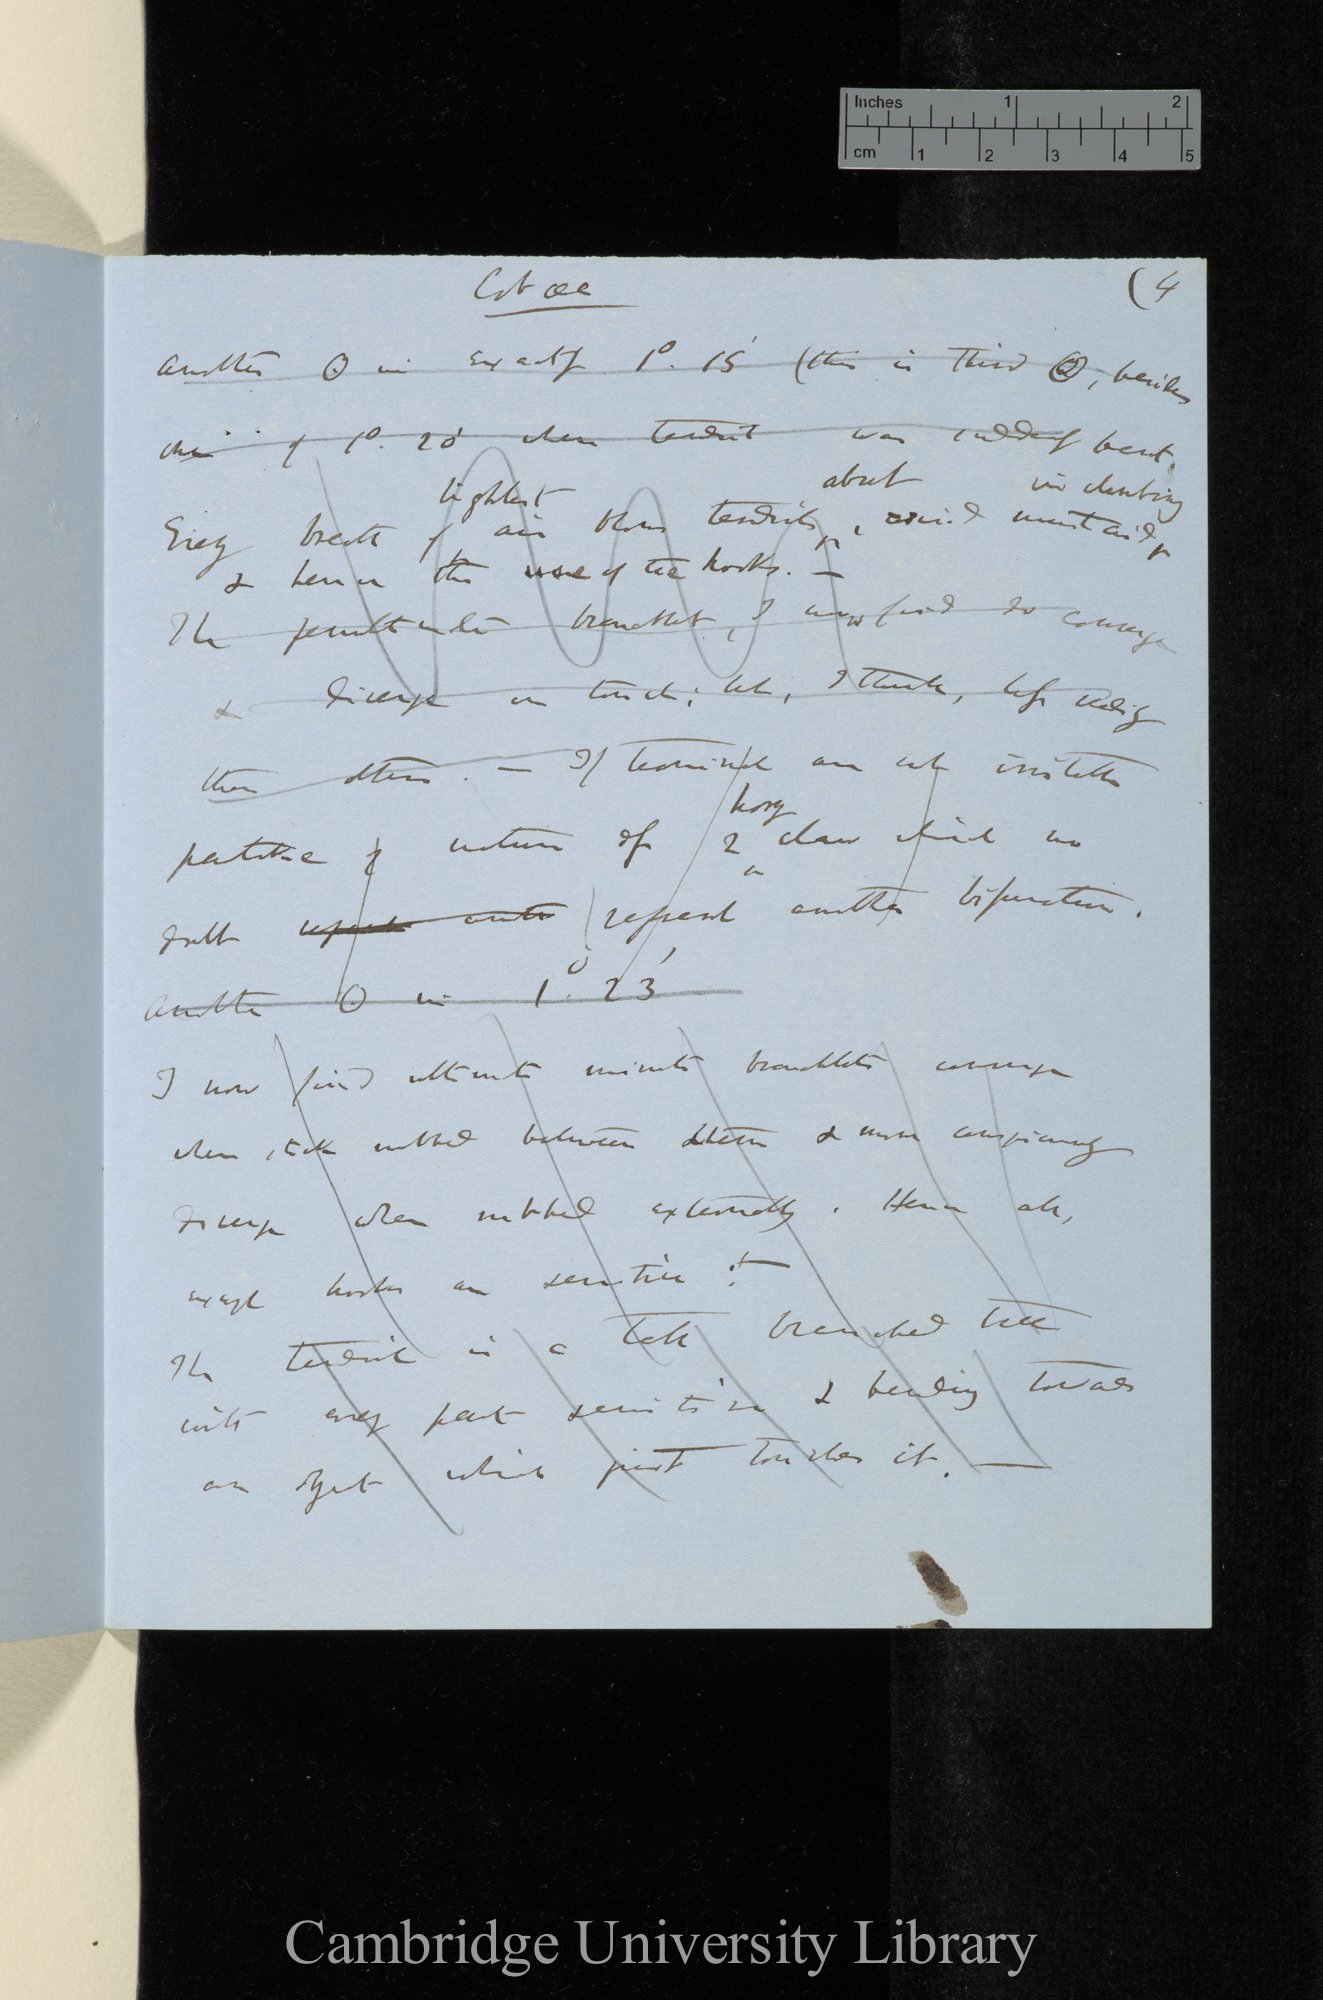 Inches 1 2
cm 1 2 3 4 5
Cobæa
(4
Another O in exactly 1°. 15' (this is third O, besides
one of 1°. 20' when tendril was suddenly bent.
lightest about in climbing
Every breath of air blows tendrils, & would
& hence the use of the hooks. —
The penultimate branchlets, I now find do converge
& diverge on touch; but, I think, less readily
than others. — If terminal are not irritable
partake of nature of 2 horny claws which no
doubt represent another bifurcation.
Another O in 1°. 23'
I now find ultimate minute branchlets converge
when stick rubbed between them & more conspicuously
diverge when rubbed externally. Hence all,
except hooks are sensitive! —
The tendril is a tall branched tree
with every part sensitive & bending towards
an object which just touches it. —
Cambridge University Library